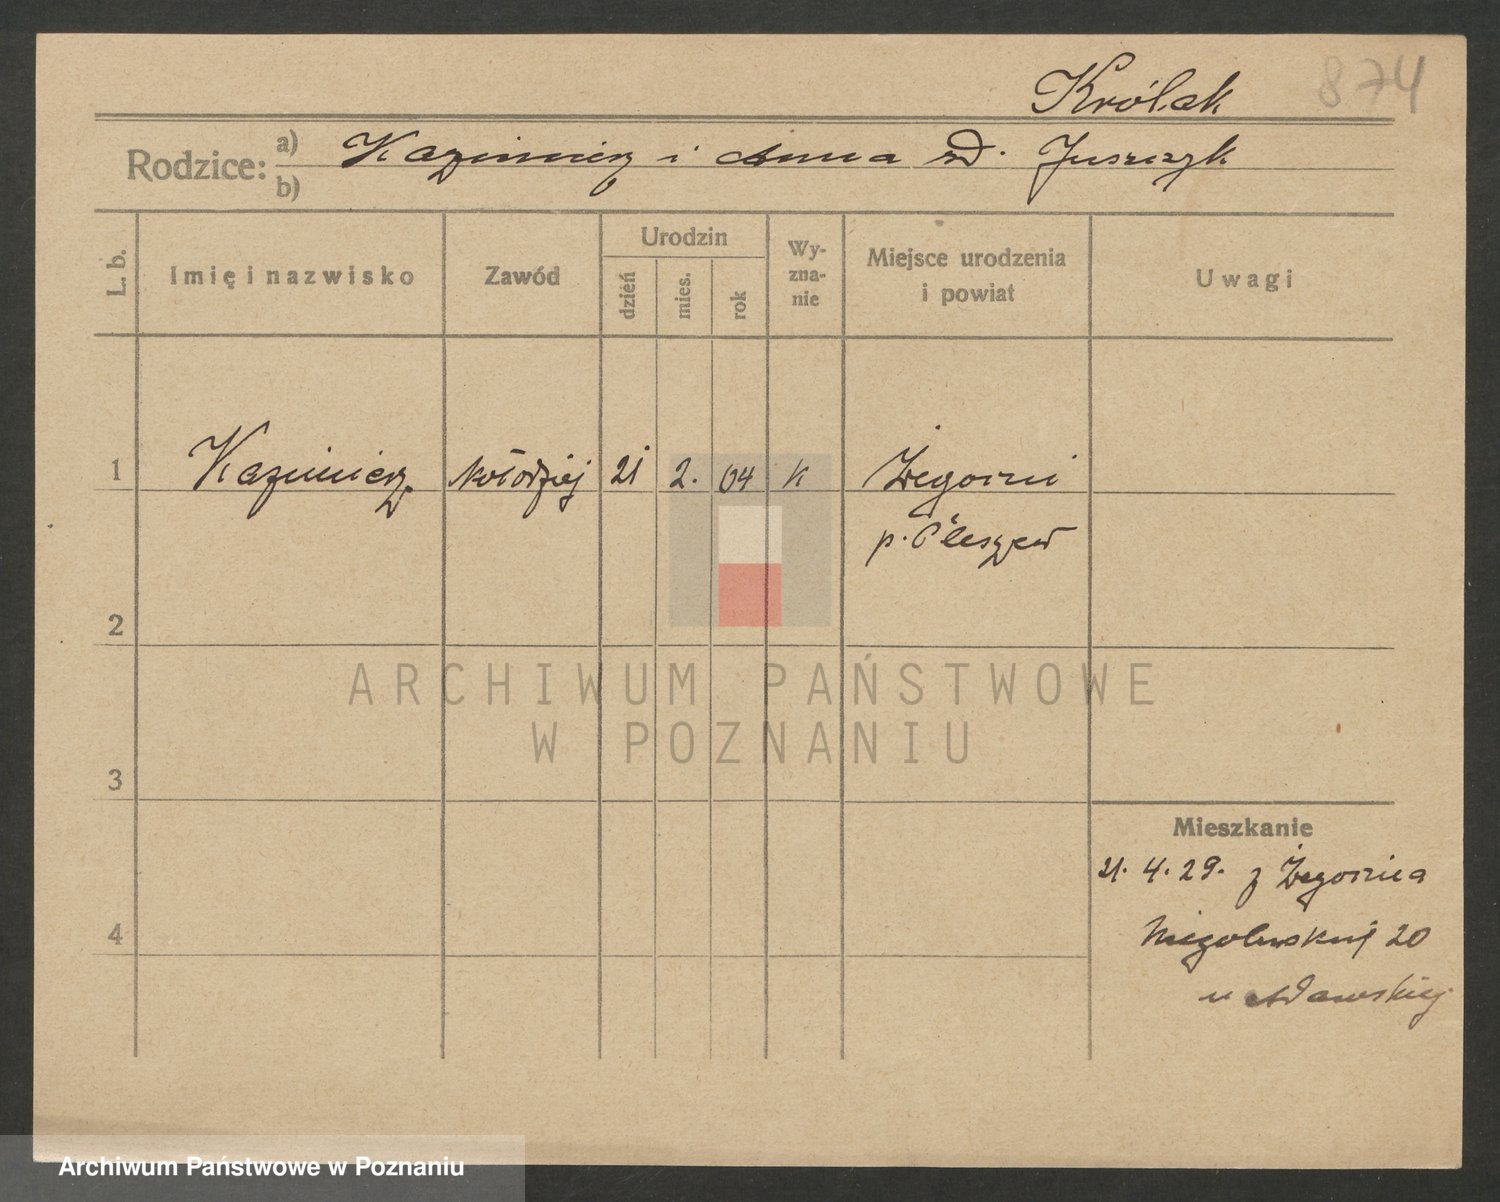 Królak 874
Rodzice: a) Kazimierz i Anna zd. Juszczyk
b)
L. b. Imię i nazwisko Zawód Urodzin dzień mies. rok Wyznanie Miejsce urodzenia i powiat Uwagi
1 Kazimierz kołodziej 21 2. 04 k Żegocin
p. Pleszew
2
ARCHIWUM PAŃSTWOWE
W POZNANIU
3
Mieszkanie
21. 4. 29. z Żegocina
4 20
u Adamskiej
Archiwum Państwowe w Poznaniu